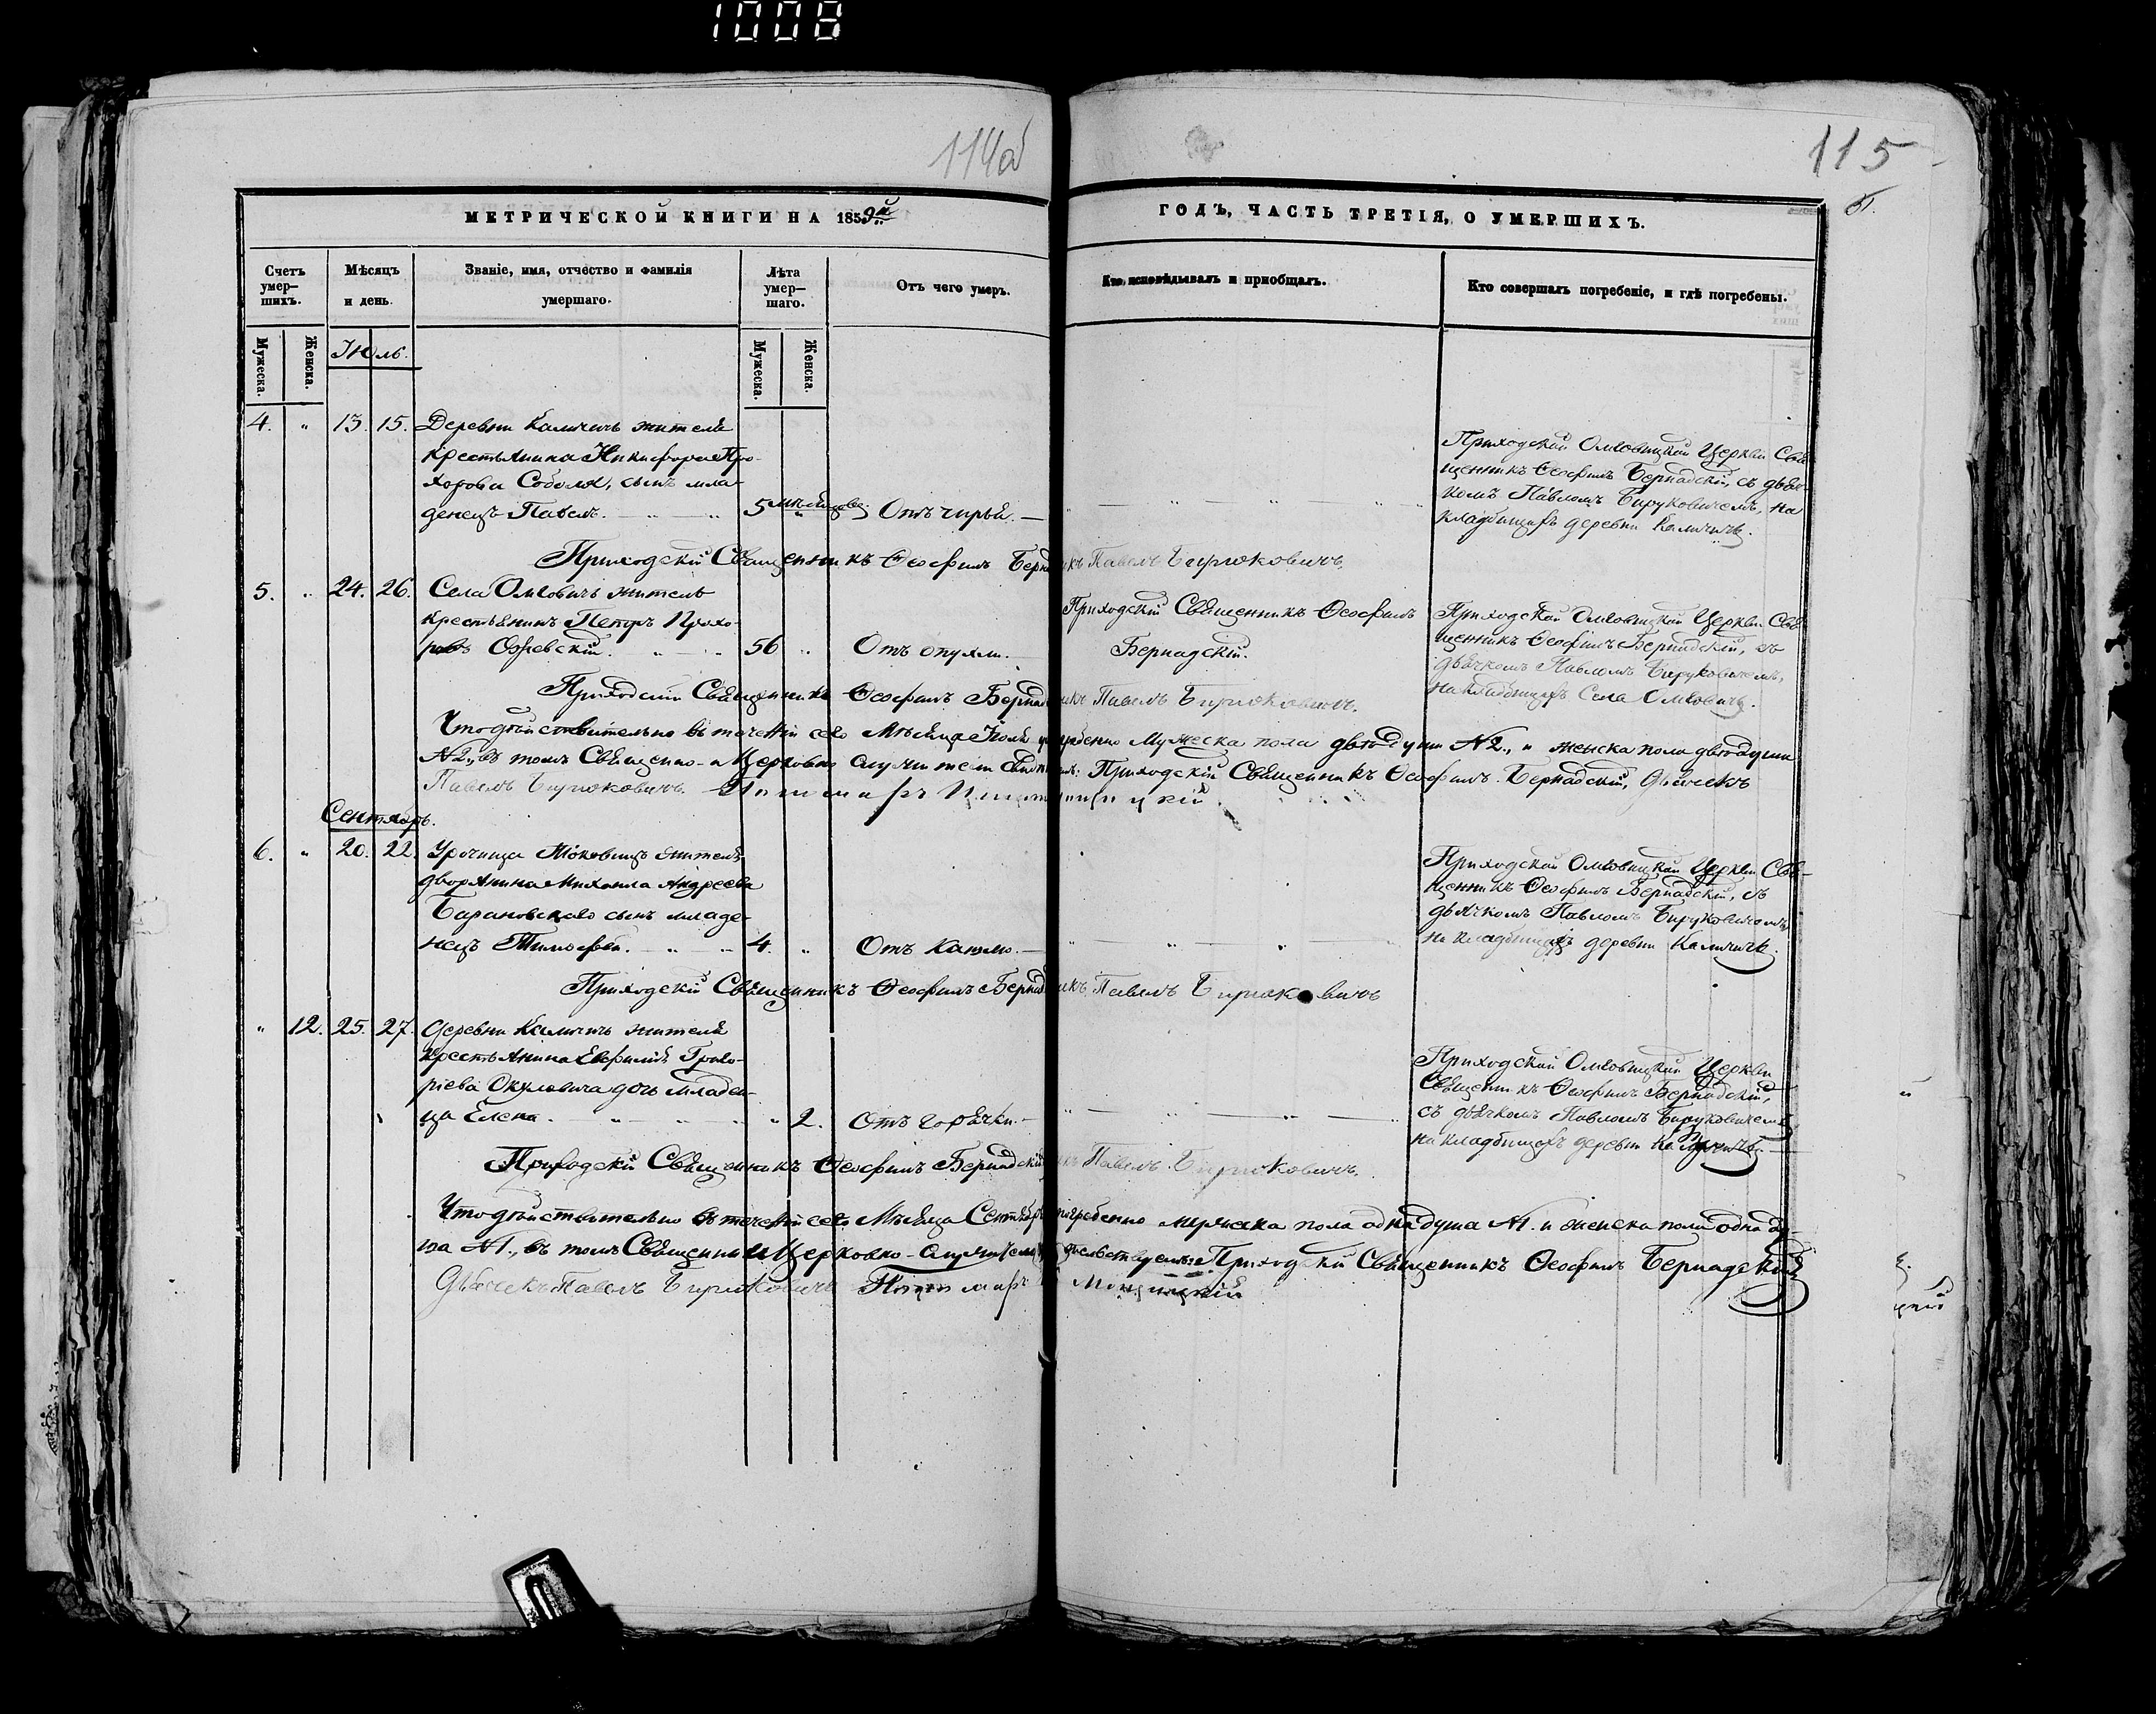 1008
114об
115
МЕТРИЧЕСКОЙ КНИГИ НА 1859й ГОДЪ, ЧАСТЬ ТРЕТІЯ, О УМЕРШИХЪ.
Счетъ умер–шихъ.
Мѣсяцъ и день.
Званіе, имя, отчество и фамилія умершаго.
Лѣта умер–шаго.
Отъ чего умеръ.
Кто исповѣдывалъ и пріобщалъ.
Кто совершалъ погребеніе, и гдѣ погребены.
Мужеска.
Женска.
Мужеска.
Женска.
Июль.
4. „ 13. 15. Деревни Каличичъ жителя
крестьянина Никифора Про-
хорова Соболя, сынъ мла-
денецъ Павелъ. 5 мѣсяцовъ. Отъ чирья.
Приходской Омговицкой Церкви Свя-
щенникъ Ѳеофилъ Бернадскій, съ дьяч-
комъ Павломъ Бируковичемъ, на
кладбищѣ деревни Каличичъ.
Приходскій Священникъ Ѳеофилъ Берна
икъ Павелъ Бирюковичъ.
5. „ 24. 26. Села Омговичъ житель
крестьянинъ Петръ Прохо-
ровъ 56 „ Отъ опухли.
Приходскій Священникъ Ѳеофилъ
Бернадскій.
Приходской Омговицкой Церкви Свя
щенникъ Ѳеофилъ Бернадскій, съ
дьячкомъ Павломъ Бируковичемъ,
на кладбищѣ Села Омговичъ.
Приходскій Священникъ Ѳеофилъ Бернад
икъ Павелъ Бирюковичъ.
Что дѣйствительно въ теченіи сего Мѣсяца Июля погребено Мужеска пола двѣ души №2., и женска пола двѣ души
№2., въ томъ Священно-и Церковно служители Приходскій Священникъ Ѳеофилъ Бернадскій, Дьячекъ
Павелъ Бирюковичъ.
Сентябрь.
6. „ 20. 22. Урочища житель
дворянина Михаила Андреева
Барановскаго сынъ младе-
нецъ Тимофей. 4. „ Отъ кашлю.
Приходской Омговицкой Церкви Свя-
щенникъ Ѳеофилъ Бернадскій, съ
дьячкомъ Павломъ Бируковичомъ,
на кладбищѣ деревни Каличичъ.
Приходскій Священникъ Ѳеофилъ Бернад
икъ Павелъ Бирюковичъ
„ 12. 25. 27. Деревни Каличичъ жителя
крестьянина Евфимія Григо-
ріева Окуловича дочь младен-
ца Елена. „ 2. Отъ горячки.
Приходской Омговицкой Церкви
Священникъ Ѳеофилъ Бернадскій,
съ дьячкомъ Павломъ Бируковичемъ
на кладбищѣ деревни Каличичъ.
Приходскій Священникъ Ѳеофилъ Бернадскій
икъ Павелъ Бирюковичъ.
Что дѣйствительно въ теченіи сего Мѣсяца Сентября погребено мужеска пола одна душа №1. и женска пола одна ду-
ша №1., въ томъ Священно и Церковно-служители Приходскій Священникъ Ѳеофилъ Бернадскій
Дьячекъ Павелъ Бирюковичъ